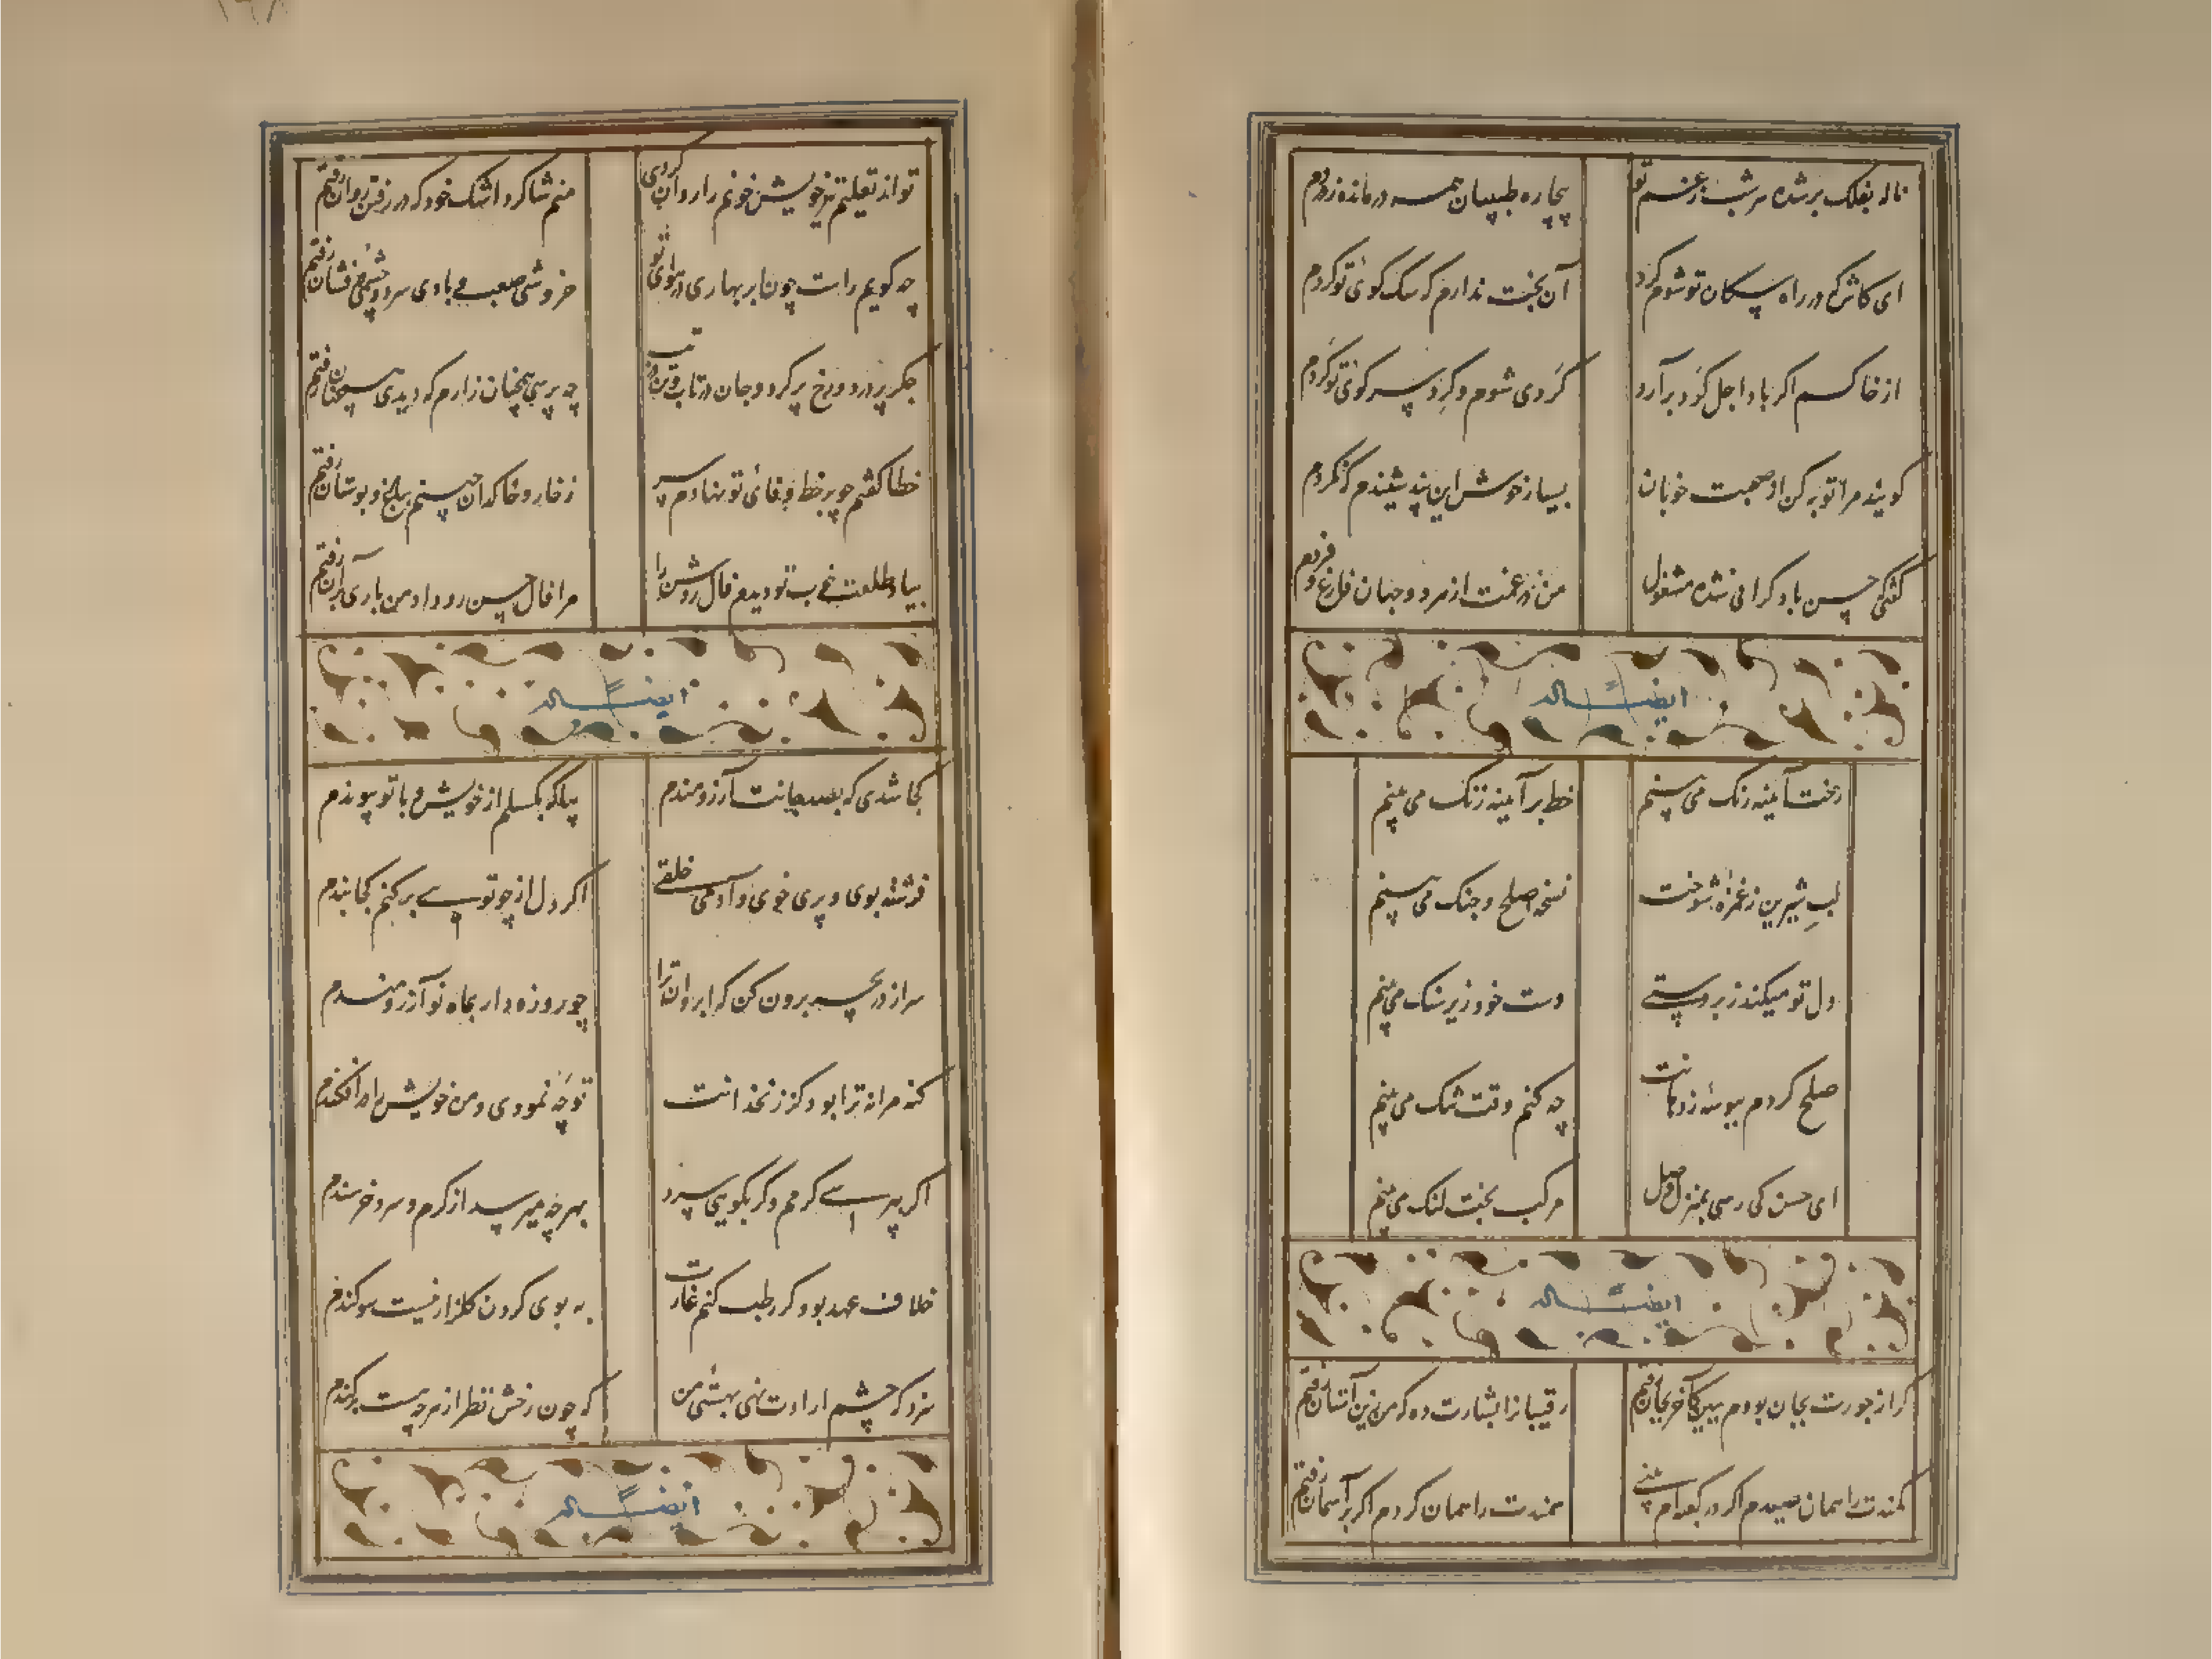 ناله بفلک بر شده هر شب ز غم تو بیچاره طبیبان همه درمانده ز دردم
ای کاش که در راه سگان تو شوم گرد آن بخت ندارم که سگ کوی تو گردم
از خاکم اگر باد اجل گرد برآرد گردی شوم و گرد سر کوی تو گردم
گویند مرا توبه کن از صحبت خوبان بسیار خوش این پند شنیدم که نکردم
گفتی حسن باد گرانی شده مشغول من در غمت از هر دو جهان فارغ و فردم
ایضاً له
رخت آئینه رنگ می بینم خط بر آئینه زنگ می بینم
لب شیرین ز غمزه شوخت نسخه صلح و جنگ می بینم
دل تو میکند زبردستی دست خود زیر سنگ می بینم
صلح کردم ببوسه ز دهانت چه کنم وقت تنگ می بینم
ای حسن کی رسی بمنزل وصل مرکب بخت لنگ می بینم
ایضاً له
گر از جورت بجان بودم ببین کآخر بجان رفتم رقیبانرا بشارت ده که من زین آستان رفتم
کمندت را همان صیدم اگر در کعبه ام بینی سمندت را همان گردم اگر بر آسمان رفتم
تو از تعلیم تیر خویش خونم را روان کردی منم شاگرد اشک خود که در رفتن روان رفتم
چه گویم راست چون ابر بهاری در هوای تو خروشی صعب و بادی سرد و چشمی خونفشان رفتم
جگر پر درد و رخ پر گرد و جان در تاب و تن در تب چه پرسی همچنان زارم که دیدی همچنان رفتم
خطا گفتم چو بر خط وفای تو نهادم سر ز خار و خاکدان جستم بباغ و بوستان رفتم
بیاد طلعت خوب تو دیدم فال روشن را مرا فال حسن رو داد من باری بر آن رفتم
ایضاً له
کجا شدی که بصد جانت آرزومندم بیا که بگسلم از خویش و با تو پیوندم
فرشته بوی و پری خوی و آدمی خلقی اگر دل از چو تویی برکنم کجا بندم
سر از دریچه برون کن که ابروان ترا چو روزه دار بماه نو آرزومندم
گنه مرا نه ترا بود کز زنخدانت تو چه نمودی و من خویش را در افکندم
اگر برانی گرمم وگر بگویی سرد بهر چه میرسد از گرم و سرد خرسندم
خلاف عهد بود گر رطب کنم غارت به بوی کردن گلزار نیست سوگندم
سزد که چشم ارادت نهی بهشتی من که چون رخش نظر از هر چه هست برکندم
ایضاً له